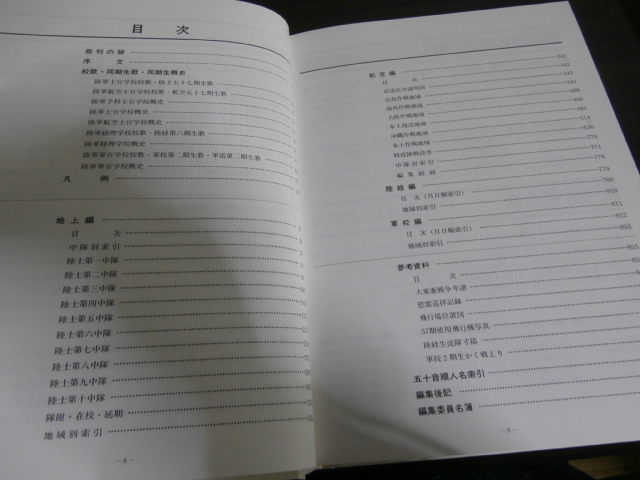 目次
発刊の辞
序文
校歌・同期生歌・同期生概史
陸軍士官学校校歌・陸士五十七期生歌
陸軍航空士官学校校歌・航空五十七期生歌
陸軍予科士官学校概史
陸軍士官学校概史
陸軍航空士官学校概史
陸軍経理学校校歌・陸経第六期生歌
陸軍経理学校概史
陸軍軍官学校校歌・軍校第二期生歌
陸軍軍官学校概史
凡例
地上編
目次
中隊別索引
陸士第一中隊
陸士第二中隊
陸士第三中隊
陸士第四中隊
陸士第五中隊
陸士第六中隊
陸士第七中隊
陸士第八中隊
陸士第九中隊
陸士第十中隊
隊附・在校・延期
地域別索引
―8―
航空編
目次 342
記述区分説明図
比島作戦地域
南西作戦地域
大陸作戦地域
本土周辺地域
沖縄作戦地域
本土作戦地域
特攻隊戦没者
中隊別索引
編集経緯 779
陸経編
目次（月日順索引）
地域別索引 811
軍校編 811
目次（月日順索引） 812
地域別索引
参考資料
目次
大東亜戦争年譜
慰霊巡拝記録
飛行場位置図
57期使用飛行機写真
陸経生徒隊寸描
軍校2期生かく戦えり
五十音順人名索引
編集後記
編集委員名簿
―9―